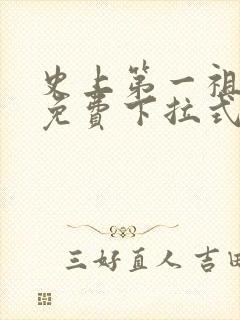 史上第一祖
免费下拉式
三好直人 吉田